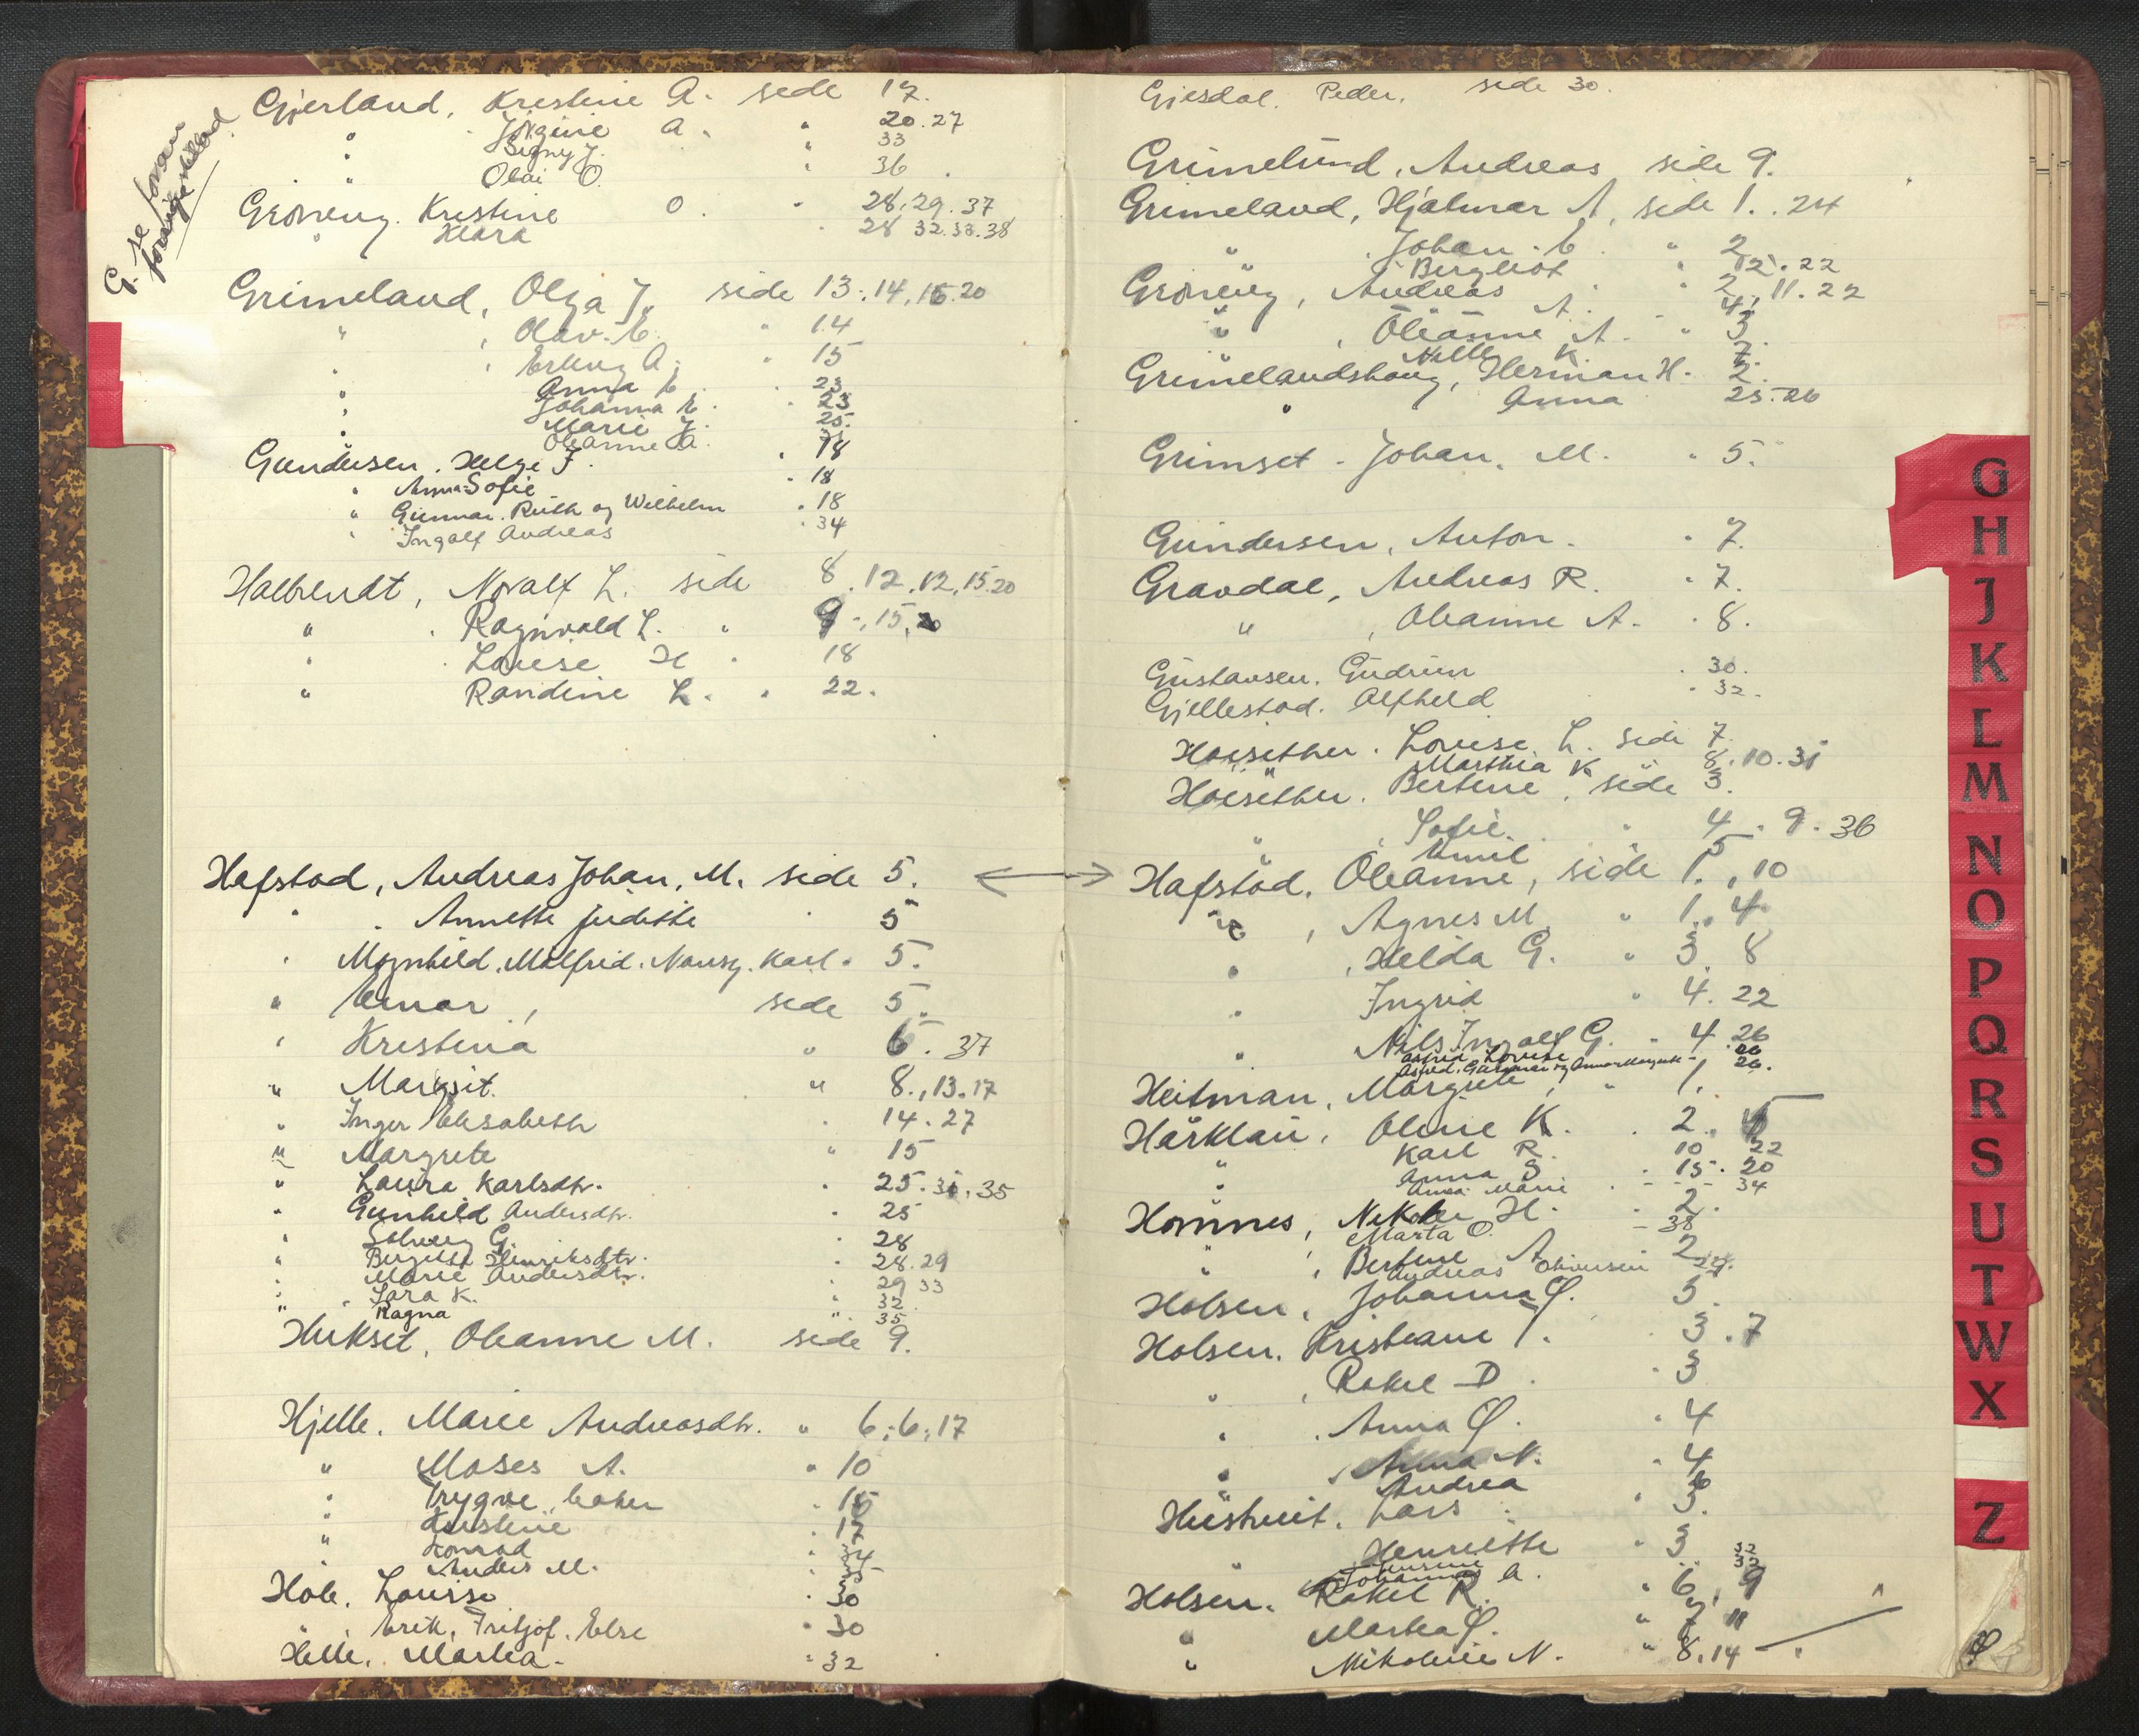 G. se foran
forrige blad
Gjerland, Kristine A. side 17.
" Jørgine A. " 20.27
" Signy J. " 33
" Olai O. " 36
Grøneng. Kristine O. " 28.29.37
" Klara " 28 32.33.38
Grimeland, Olga J. side 13.,14,16.20
" , Olav. E. " 14
" , Erling A. " 15
" Anna E. " 23
" Johanna E. " 23
" Marie J. 25.
" Oleanne A.
Gundersen. Helge F. " 18
" Anna Sofie " 18
" Gunnar. Ruth og Wilhelm " 18
" Ingolf Andreas " 34
Halbrendt, Noralf L. side 8.12.12,15.20
" Ragnvald L. " 9.,15,20
" Louise H " 18
" Randine L. " 22.
Hafstad, Andreas Johan, M. side 5.
" Annette Judithe " 5
" Magnhild, Malfrid. Nansy. Karl. 5.
" Einar, side 5.
" Kristina " 6. 37
" Margit. " 8.,13.17
" Inger Elisabeth " 14.27
" Margrete " 15
" Laura Karlsdtr. " 25.31.35
" Gunhild Andersdtr. " 25
" Solveig G. " 28
" Birgitte Henriksdtr. " 28.29
" Marie Andersdtr. " 29 33
" Lara K. " 32
" Ragna " 35
Hikset, Oleanne M. side 9.
Hjelle. Marie Andreasdtr. " 6.;6.;17
" Moses A. " 10
" Trygve " 15
" Kristine " 17
" Konrad " 34
" Anders M. " 35
Hole. Louise " 30
" Erik, Fritjof. Else " 30
Helle. Martha. " 32
Gjesdal. Peder. side 30.
Grimelund, Andreas side 9.
Grimeland, Hjalmar A, side 1..24
" Johan. E. " 2
" Bergliot " 12.22
Grøneng, Andreas " 2, 11.22
A. " 4.
" , Oleanne A. " 3
Nille K. 7.
Grimelandshaug, Herman H. 2.
" Anna 25.26
Grimset. Johan. M. " 5.
Gundersen, Anton. " 7.
Gravdal, Andreas R. " 7.
" , Oleanne A. " 8.
Gustavsen. Gudrun " 30.
Gjellestad. Alfhild " 32.
Høisether. Lovise L. side 7.
" Marthia K 8.10.31
Høisether. Bertine, side 3.
" , Sofie. " 4. 9. 36
" Emil 5
Hafstad. Oleanne, side 1., 10
" , Agnes M. " 1., 4.
" , Hilda G. " 3. 8
" Ingrid " 4. 22
" Nils Ingolf G. " 4. 26
Astrid Lovise 26
26.
Heitman, Margrete, " 1.
Harklau, Oline K. " 2.
" Karl R. 10 22
" Anna S. " 15. 20
Anna Marie 34
Homnes, Nikolai H. " 2.
Marta O. - 38
" , Bertine A. 2
Andreas Oliversen
Holsen, Johanna Ø. 3.
Holsen. Kristiane J. " 3.7
" , Rakel D. " 3
" , Anna Ø. " 4
" , Anna N. " 4
" Andrea 6
Hustveit. Lars " 3.
" Henriette " 3
Johanne A. 32
Holsen. Rakel R. " 6, 9
" Martha Ø. " 7, 11
" Mikoline N. " 8,14
G
H
J
K
L
M
N
O
P
Q
R
S
U
T
W
X
Z
Ø